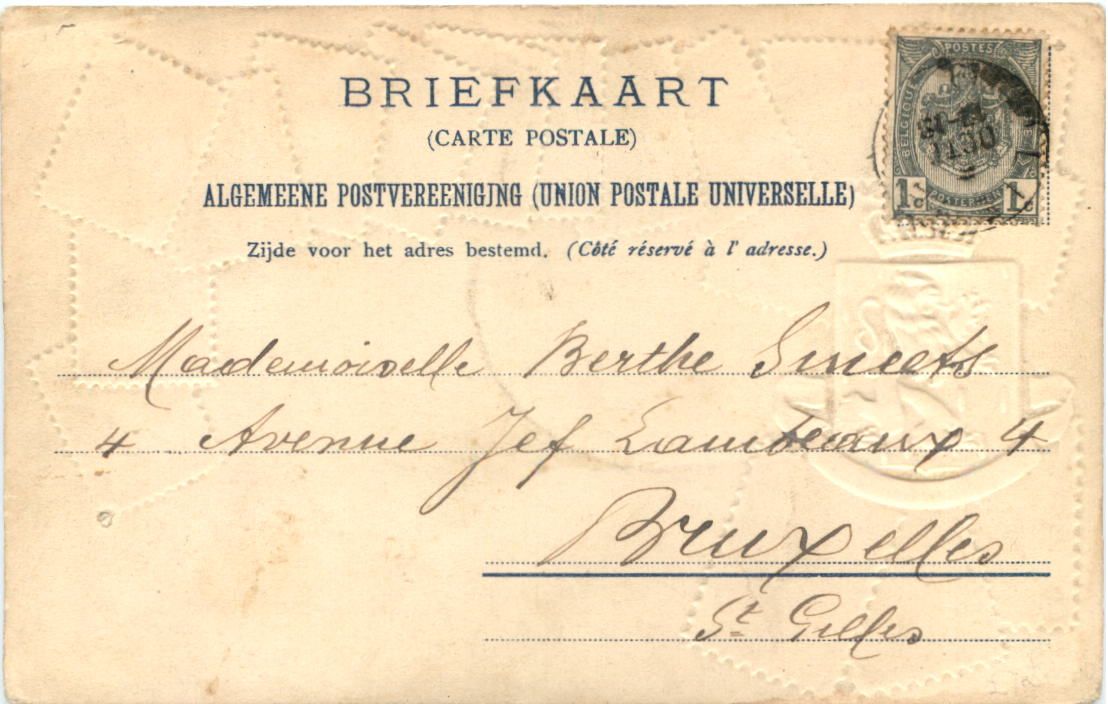 BRIEFKAART
(CARTE POSTALE)
ALGEMEENE POSTVEREENIGJNG (UNION POSTALE UNIVERSELLE)
Zijde voor het adres bestemd. (Côté réservé à l' adresse.)
POSTES
BELGIQUE
1c 1c
POSTERIJEN
Mademoiselle Berthe Smeets
4 Avenue Jef Lambeaux 4
Bruxelles
St Gilles